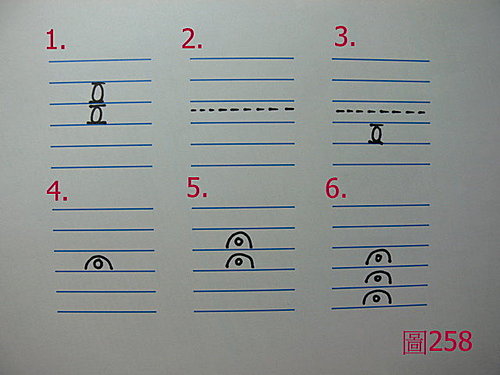 1. 2. 3.
4. 5. 6.
圖258